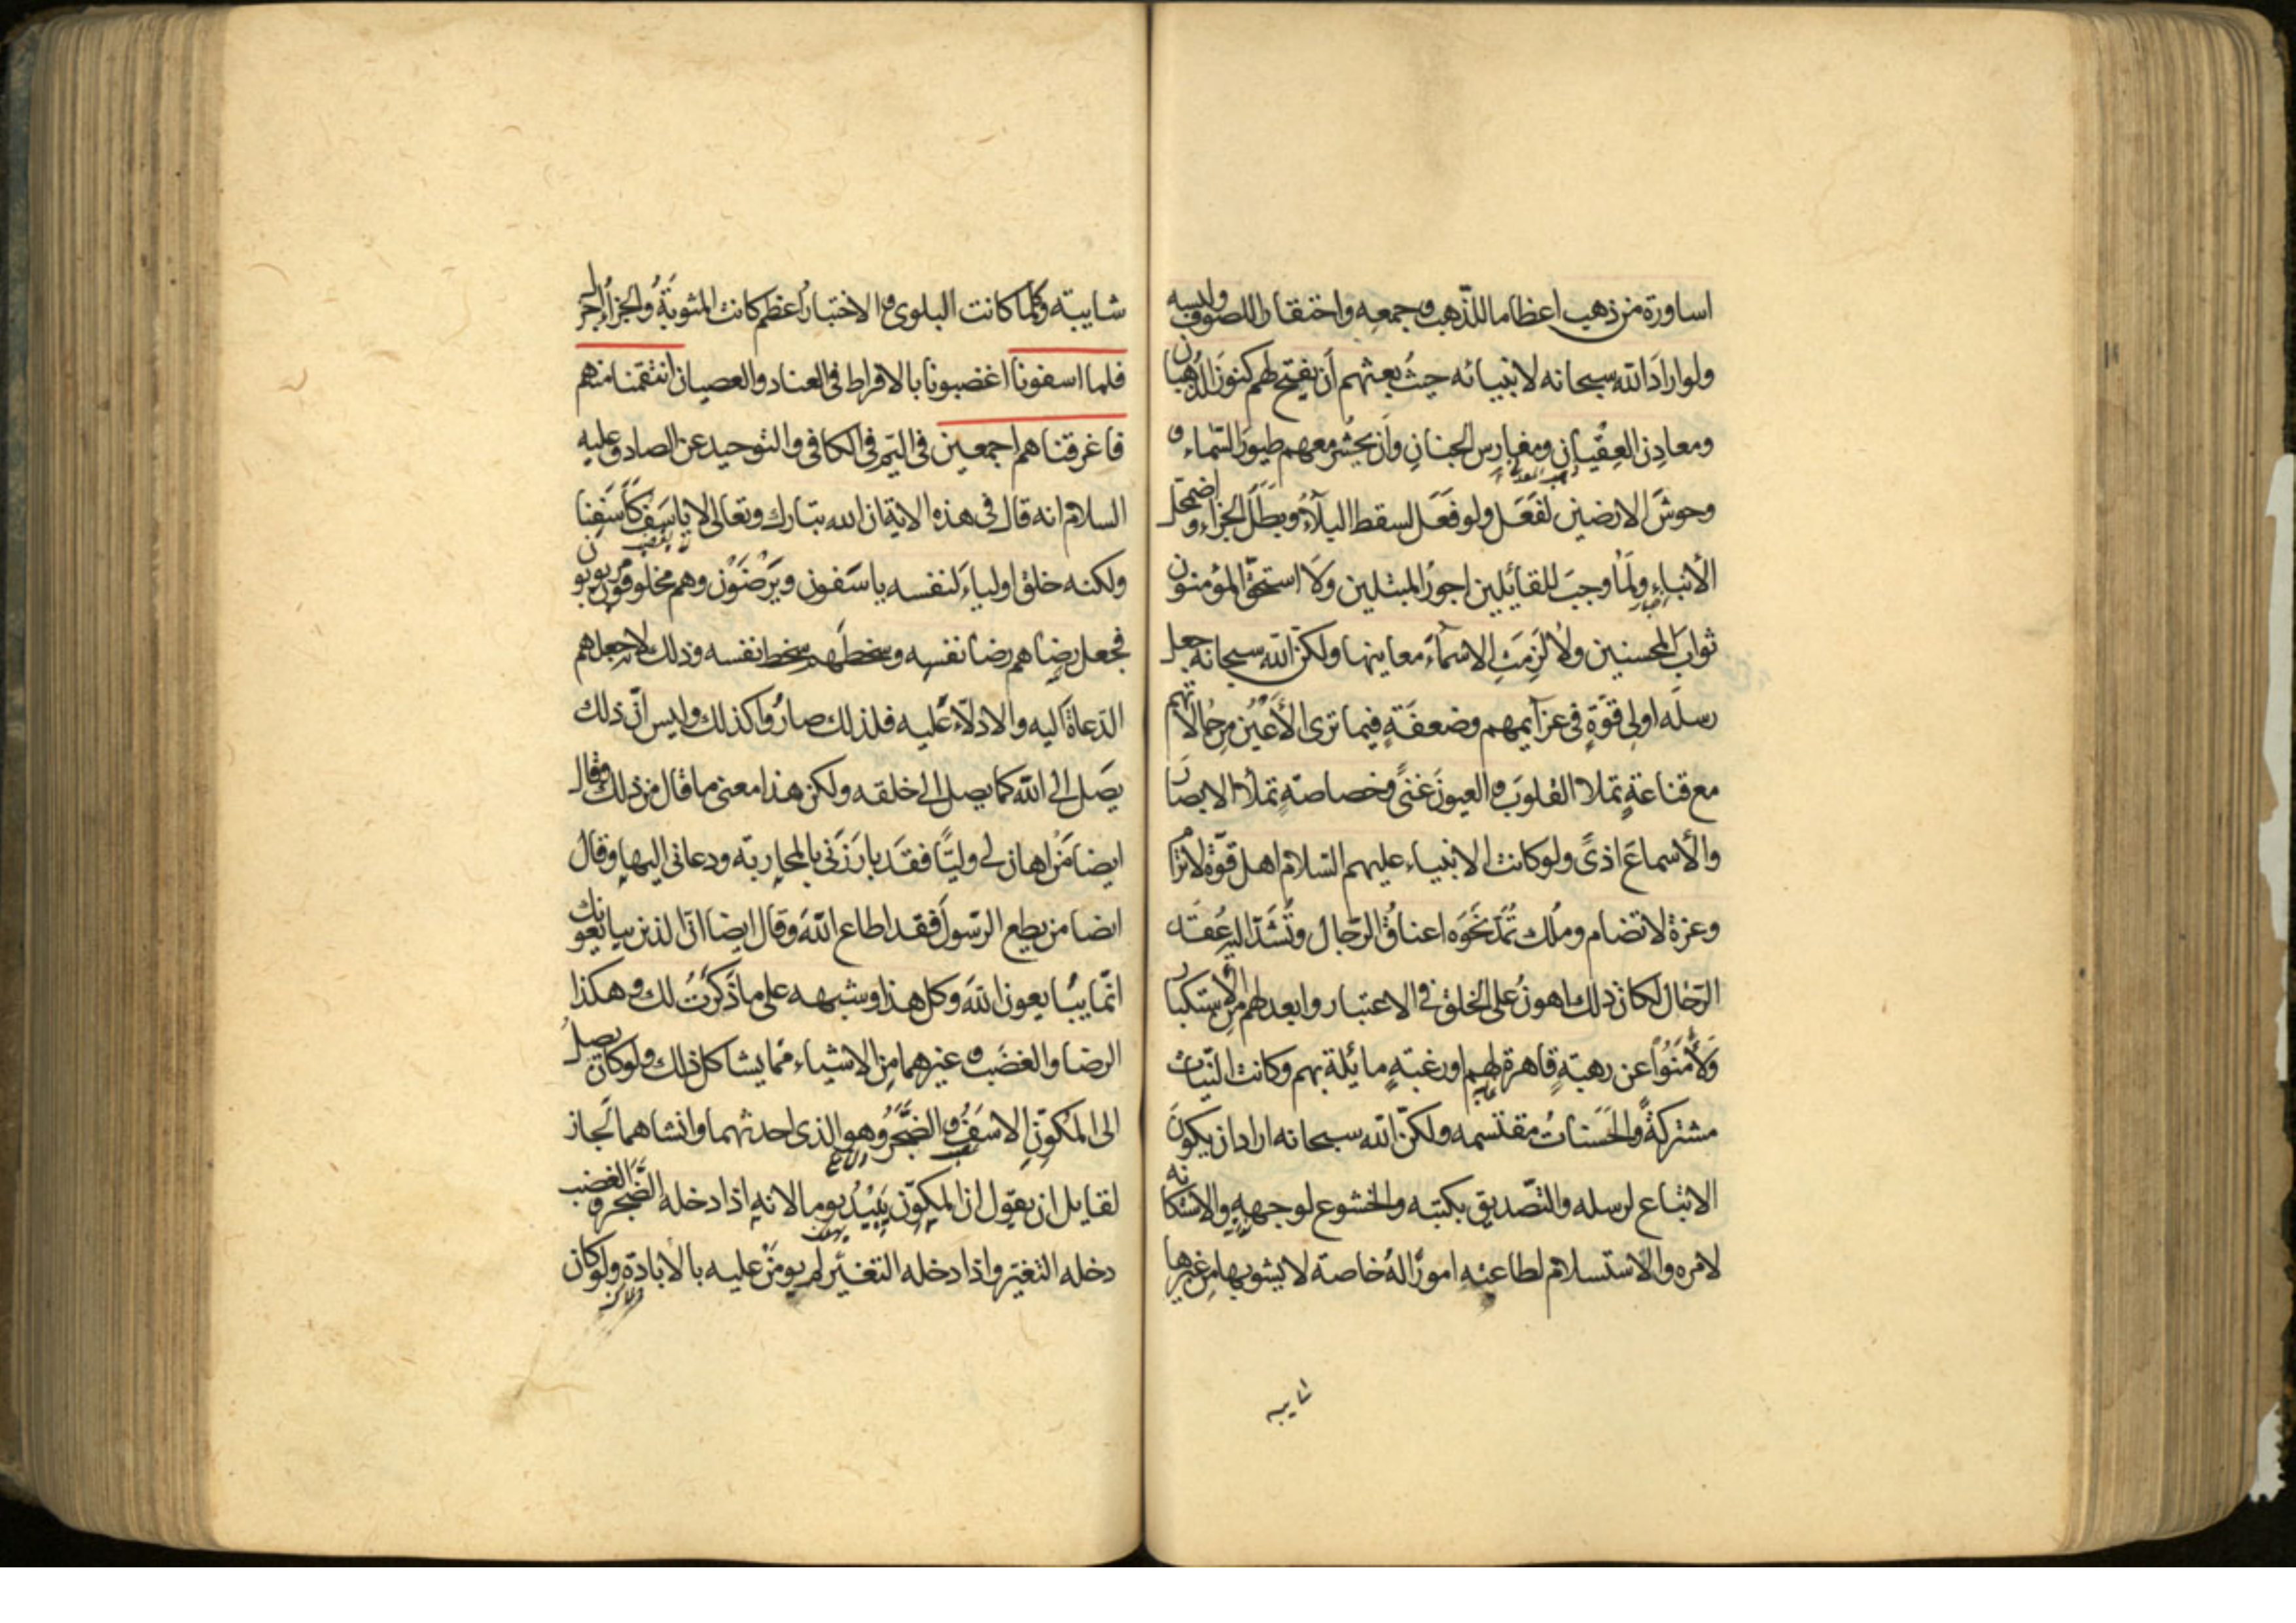 اساورة من ذهب اعظاما للذّهب وجمعه واحتقارا للصوف ولبسه
ولو ارادَ الله سبحانه لانبيائه حيثُ بعثهم اَن يفتح لهم كنوزَ الذُّهبان
ومعادِن العِقْيانِ ومغارِس الجنانِ وَاَن يحشُر معهم طيورَ السّماء و
وحوشَ الارضين لفَعَل ولو فَعَل لسقط البلآءُ وبطَلَ الجزاء واضمحلّ
الأنباء ولَمَا وجبَ للقائِلين اجورُ المبتلين وَلَا استحقّ المؤمنون
ثوابَ المحسنين ولا لَزِمَتِ الاسمآءُ معانيها ولكنّ الله سبحانه جعل
رسلَه اولى قوّةٍ فى عزآيمهم وضعفَةٍ فيما ترى الأَعيُن من حالاتهم
مع قناعةٍ تملا القلوبَ و العيونَ غنىً وخصاصةٍ تملأ الابصارَ
والأسماعَ اذىً ولو كانت الانبياء عليهم السّلام اهل قوّة لاترام
وعزة لاتضام وملك تُمَدّ نحَوَه اعناقُ الرّجال وتُشَدّ اليه عُقَد
الرّحال لكان ذلك اهونُ على الخلق فى الاعتبار وابعد لهم من الاستكبار
وَلَأمَنُوا عن رهبةٍ قاهرة لهم اورغبةٍ مائلة بهم وكانت النّيات
مشتركةً والحَسَناتُ مقتسمه ولكنّ الله سبحانه اراد ان يكونَ
الاتباع لرسله والتّصديق بكتبه والخشوع لوجههِ والاستكانه
لامره والاستسلام لطاعتهِ امورًا لهُ خاصة لايشوبها من غيرها
شايبه
شايبته وكلّما كانت البلوى و الاختبارُ اعظم كانت المثوبَةُ والجزاءُ اجزل
فلما اسفونا اغضبونا بالافراط فى العناد والعصيان انتقمنا منهم
فاغرقناهم اجمعين فى اليّم فى الكافى والتوحيد عن الصادق عليه
السلام انه قال فى هذه الاية ان الله تبارك وتعالى لا ياسَف كَاَسَفِنا
ولكنه خلق اولياءَ لنفسه ياسَفون ويَرْضَوْن وهم مخلوقون مربوبون
فجعل رضاهم رضا نفسِه وسخطَهم سخط نفسه وذلك لانه جعلهم
الدّعاة اليه والادلّاء عليه فلذلك صارُوا كذلك وليس انّ ذلك
يصَل الى الله كما يصل الى خلقه ولكن هذا معنى ما قال من ذلك وقال
ايضا مَنْ اهان لى وليًّا فقَد بارَزَنى بالمحاربة ودعانى اليها وقال
ايضا من يطع الرّسول فقد اطاع الله وقال ايضا انّ الذين يبايعونك
انّما يبايعون الله وكل هذا وشبهه على ما ذَكرْتُ لك وهكذا
الرضا والغضَب و غيرهما مِن الاشياء ممّا يشاكل ذلك ولو كان يصلُ
الى المُكوّنِ الاسَفُ و الضَّجَرُ وهو الذى احدثهما وانشاهما لَجاز
لقايل ان يقول ان المكوّن يَبيْدُ يوما لانهِ اذا دخله الضّجر والغضب
دخله التغيّر واذا دخله التغيّر لم يومَنْ عليه بالابادة ولو كان